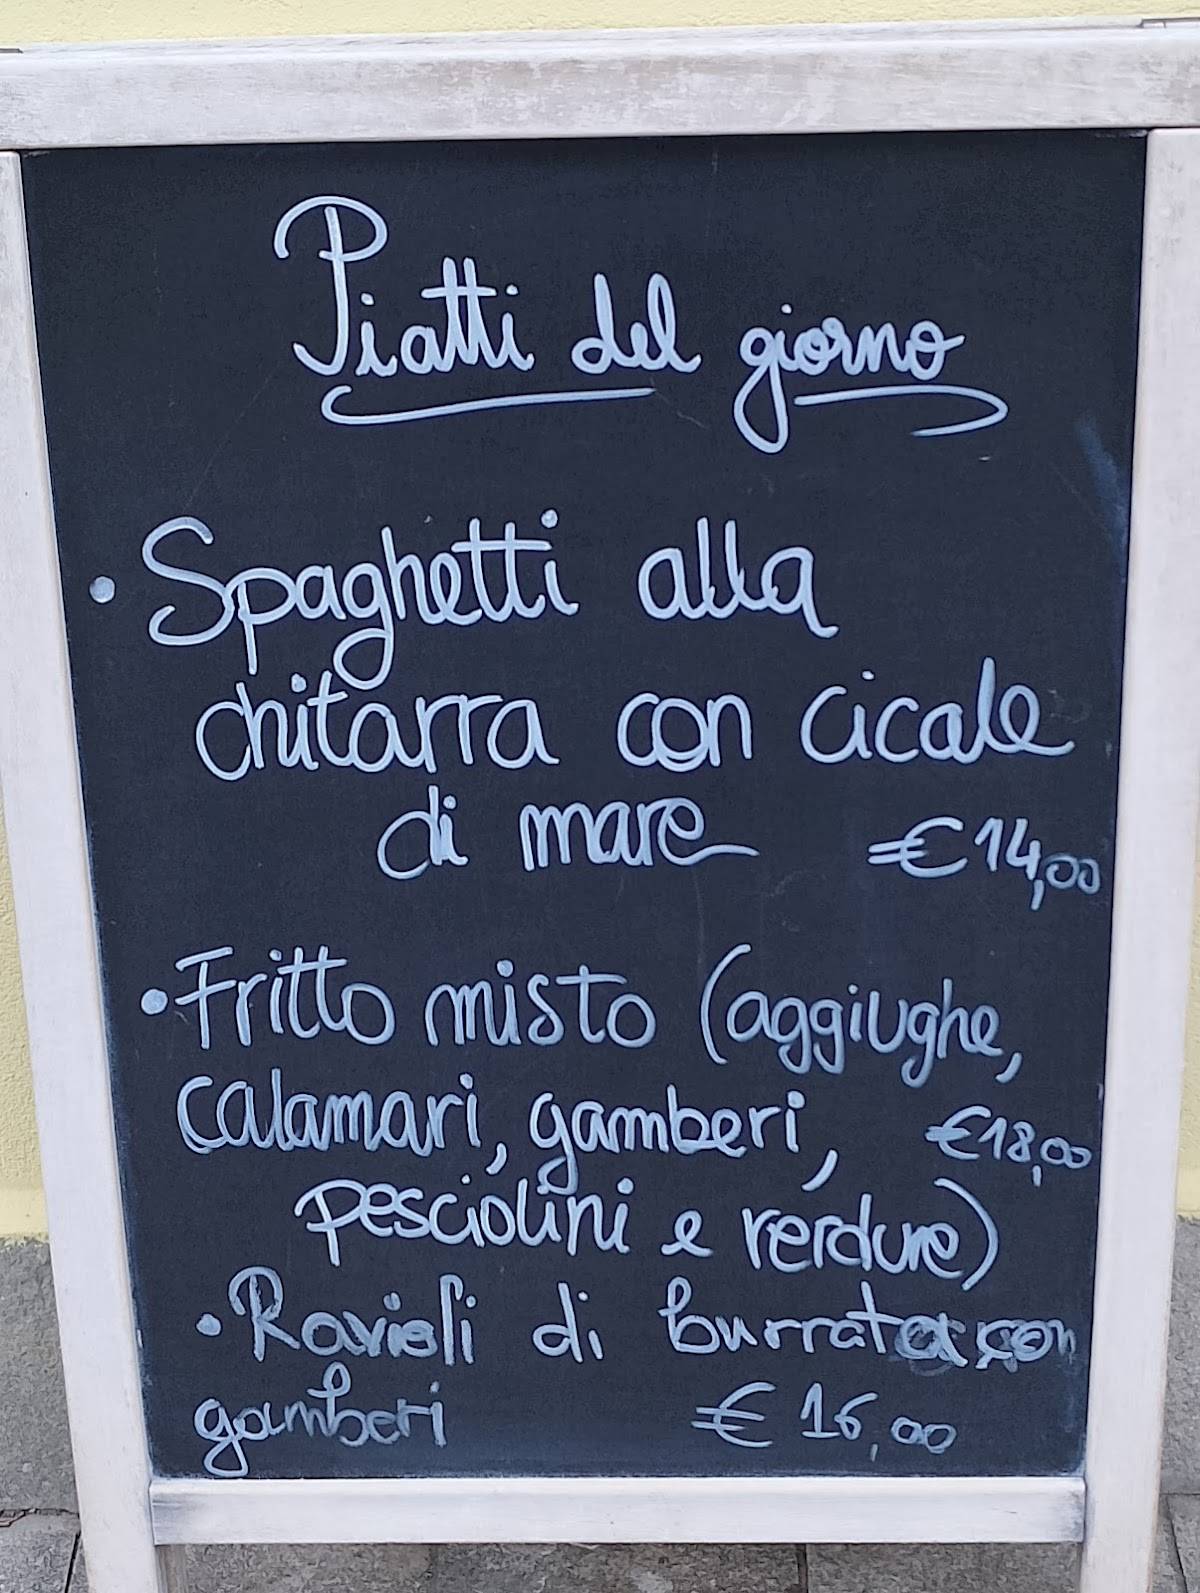 Piatti del giorno
• Spaghetti alla
chitarra con cicale
di mare €14,00
• Fritto misto (aggiughe,
calamari, gamberi, €18,00
pesciolini e verdure)
• Ravioli di burrata con
gamberi € 16,00